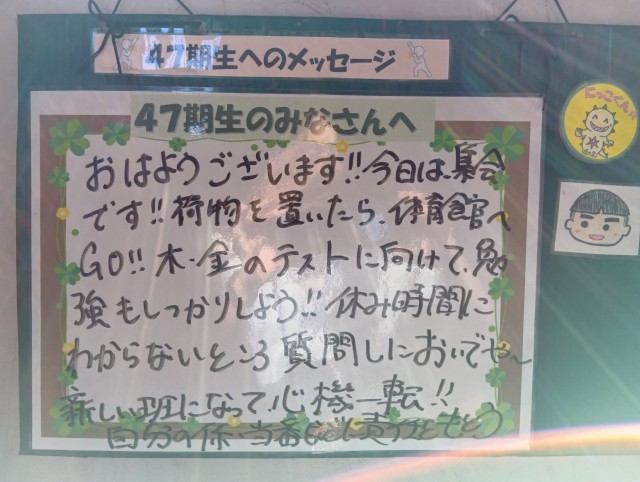 47期生へのメッセージ
にっこくん
47期生のみなさんへ
おはようございます!!今日は、集会
です!!荷物を置いたら、体育館へ
GO!!木・金のテストに向けて、勉
強もしっかりしよう!!休み時間に
わからないところ質問しにおいでや～
新しい班になって、心機一転!!
自分の係・当番に責任をもとう